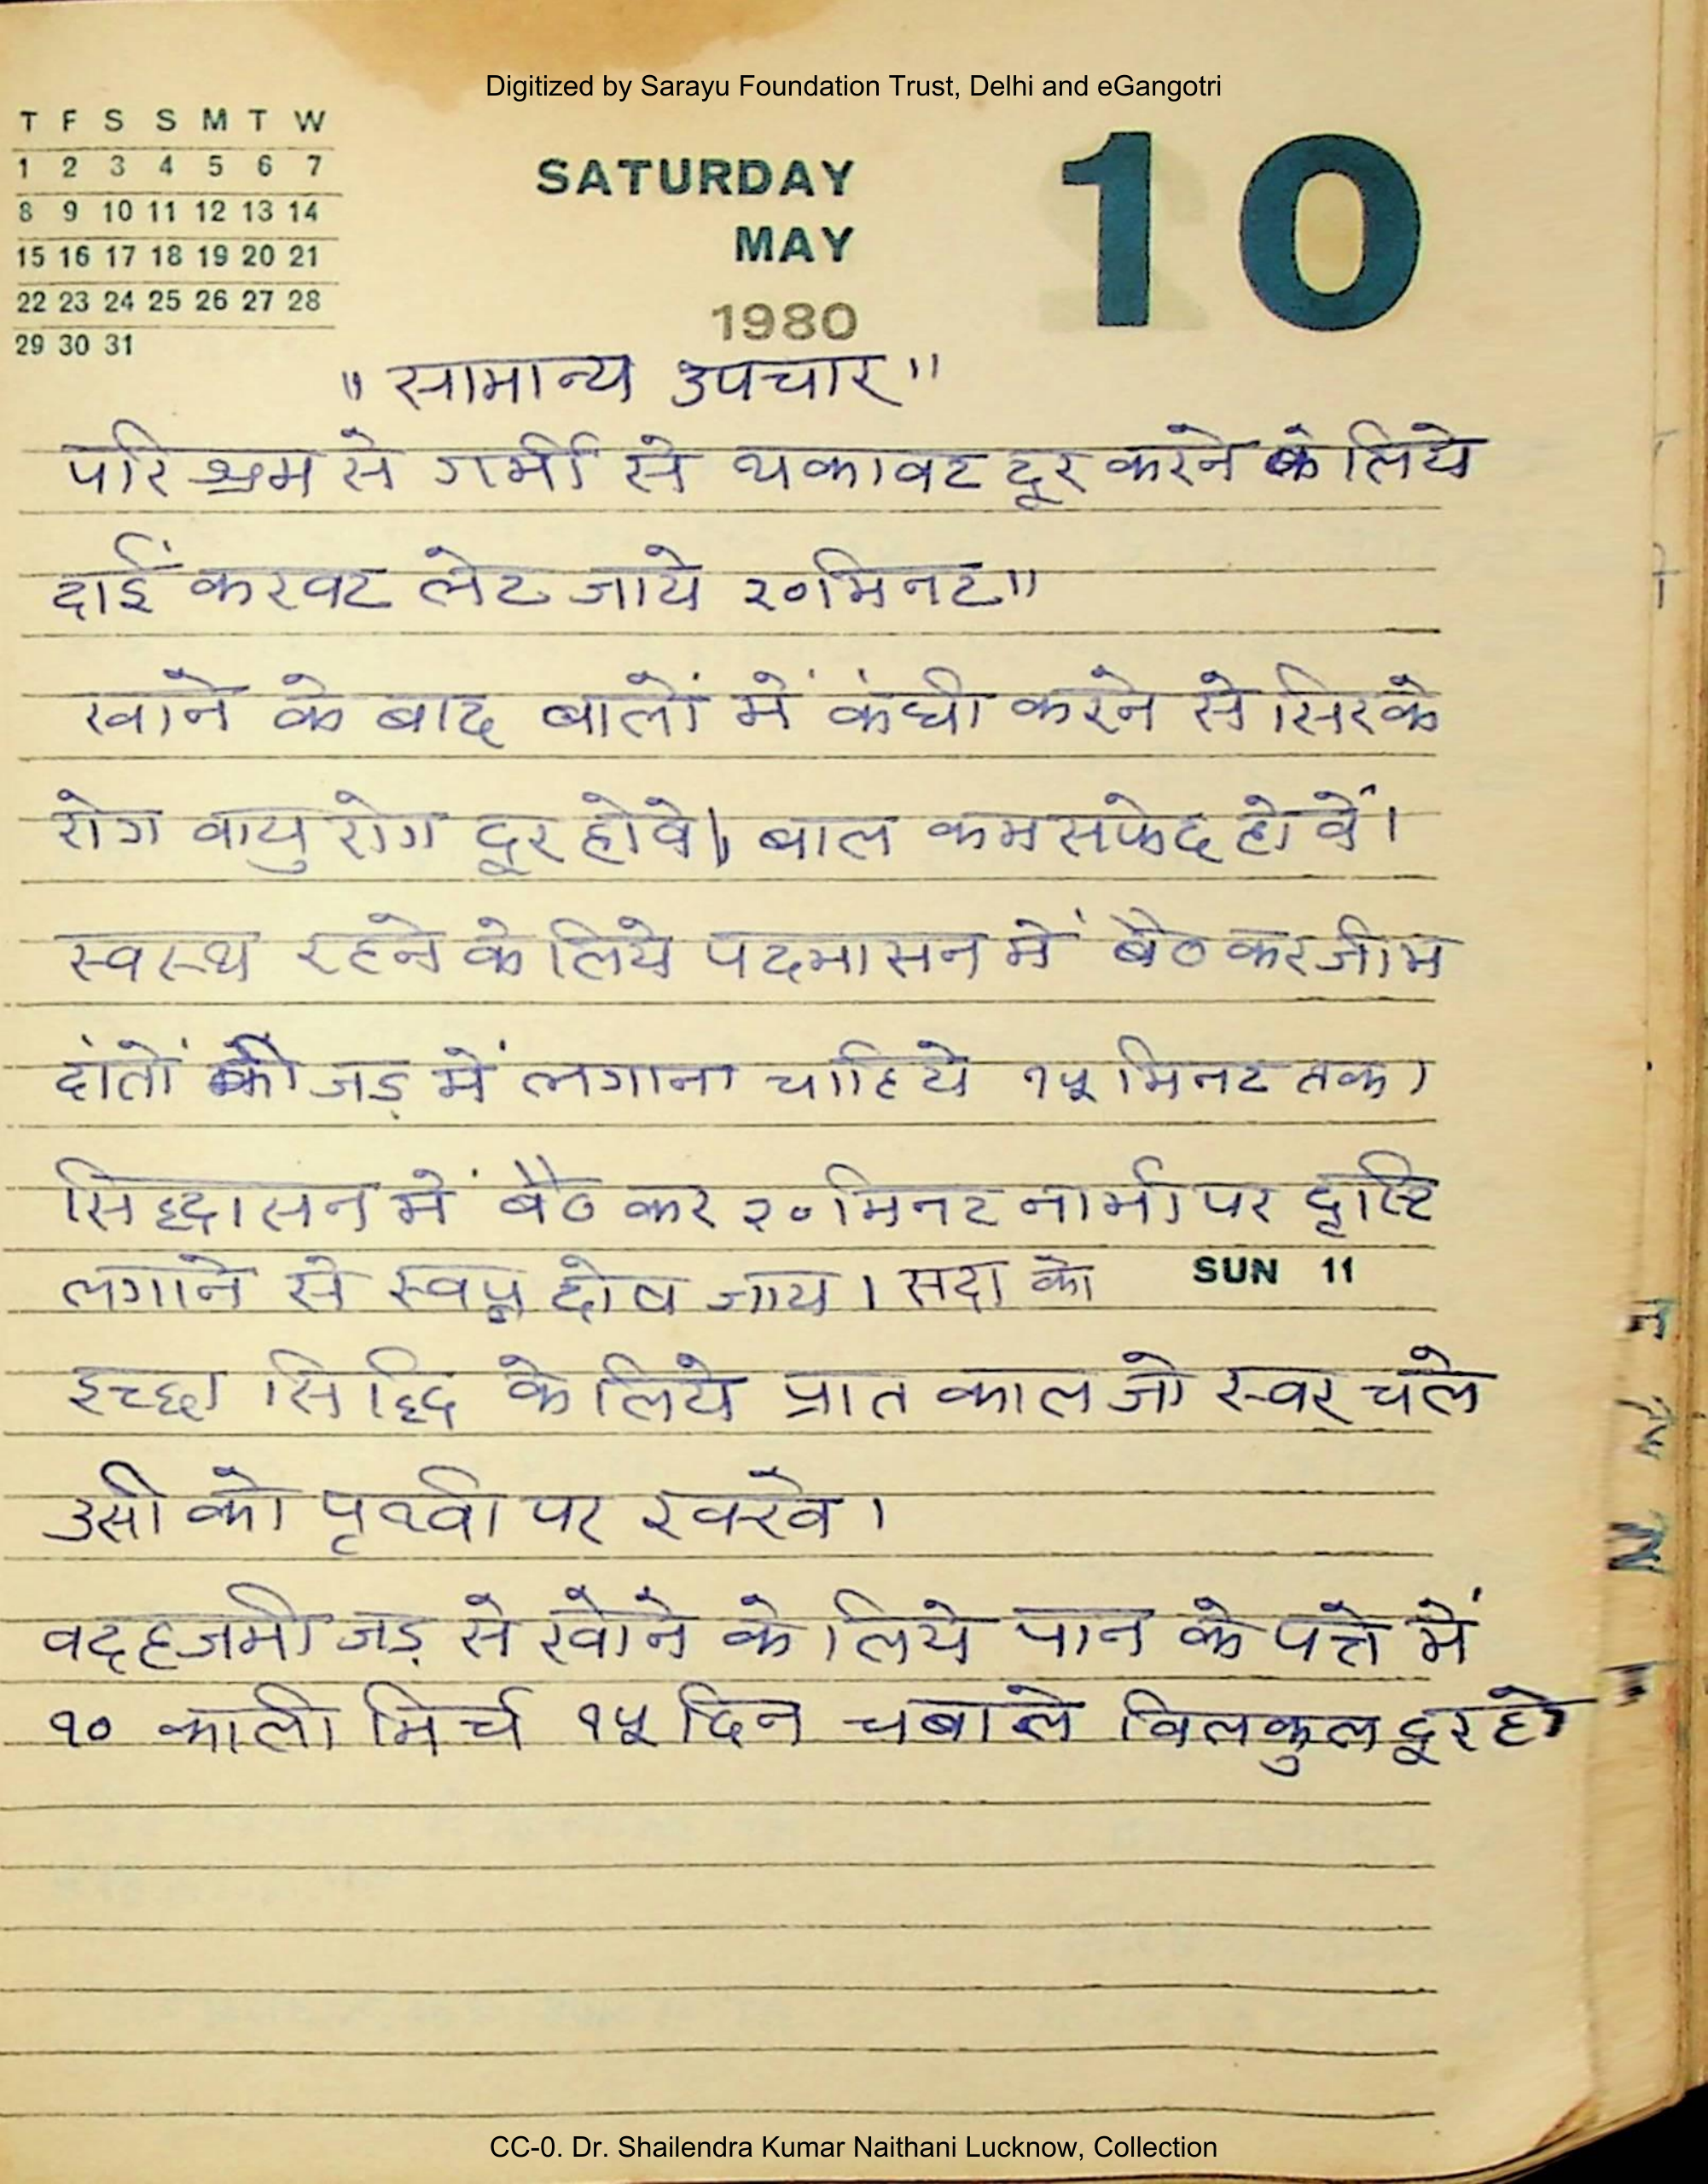 Digitized by Sarayu Foundation Trust, Delhi and eGangotri
T F S S M T W
1 2 3 4 5 6 7
8 9 10 11 12 13 14
15 16 17 18 19 20 21
22 23 24 25 26 27 28
29 30 31
SATURDAY
MAY
1980
10
"सामान्य उपचार"
परिश्रम से गर्मी से थकावट दूर करने के लिये
दाईं करवट लेट जाये २० मिनट॥
खाने के बाद बालों में कंघी करने से सिर के
रोग वायु रोग दूर होवे। बाल कम सफेद होवें।
स्वस्थ रहने के लिये पदमासन में बैठ कर जीभ
दांतों की जड़ में लगाना चाहिये १५ मिनट तक।
सिद्धासन में बैठ कर २० मिनट नाभी पर दृष्टि
लगाने से स्वप्न दोष जाय। सदा को
SUN 11
इच्छा सिद्धि के लिये प्रात काल जो स्वर चले
उसी को पृथ्वी पर रक्खे।
वदहजमी जड़ से खोने के लिये पान के पत्ते में
१० काली मिर्च १५ दिन चबाले विलकुल दूर हो
CC-0. Dr. Shailendra Kumar Naithani Lucknow, Collection